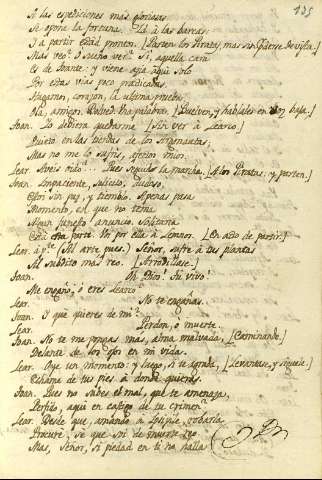 135
A las espediciones mas gloriosas
Se opone la fortuna. Id á las barcas,
Y á partir estad prontos. [Parten los Piratas, mas sin perderse de vista.]
Mas veo? O sueño ver? Si, aquella cara
Es de Toante: y viene aqui solo
Por estas vias poco practicadas.
Hagamos, corazon, la ultima prueba.
Ola, amigos. Bolved. Una palabra. [Buelven, y hablales en voz baja.]
Toan. Yo debiera quedarme [Sin ver á Learco]
Quieto en las tiendas de los Argonautas;
Mas no me lo sufris, afectos mios.
Lear. Aveis oido... Pues seguid la marcha. [A los Piratas, y parten.]
Toan. Impaciente, solicito, dudoso,
Estoy sin paz, y tiemblo. Apenas pasa
Momento, en que no tema
Algun funesto anuncio. Solitaria
Está esta parte. Voi por ella á Lemnos. [En acto de partir.]
Lear. á pte. (Al arte pues.) Señor, sufre á tus plantas
Al subdito mas reo. [Arrodillase.]
Toan. Oh Dios! Tu vivo!
Me engaño, ó eres Learco?
Lear. No te engañas.
Toan. Y qué quieres de mi?
Lear. Perdon, ó muerte.
Toan. No te me pongas mas, alma malvada, [Caminando.]
Delante de los ojos en mi vida.
Lear. Oye un momento: y luego, si te agrada, [Levantase, y siguele.]
Echame de tus pies á donde quieras.
Toan. Pues no sabes el mal, que te amenaza,
Perfido, aqui en castigo de tu crimen?
Lear. Desde que, amando á Isipile, robarla
Procuré, sé que soi de muerte reo.
Mas, Señor, si piedad en ti no halla